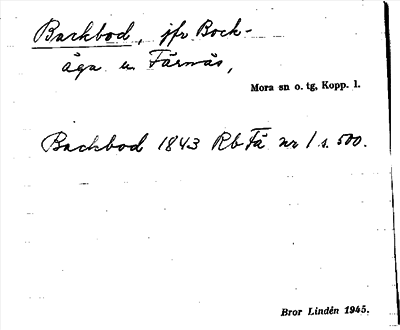 Backbod, jfr Bock-
äga u Färnäs,
Mora sn o. tg, Kopp. l.
Backbod 1843 Rb Fä nr 1 s. 500.
Bror Lindén 1945.